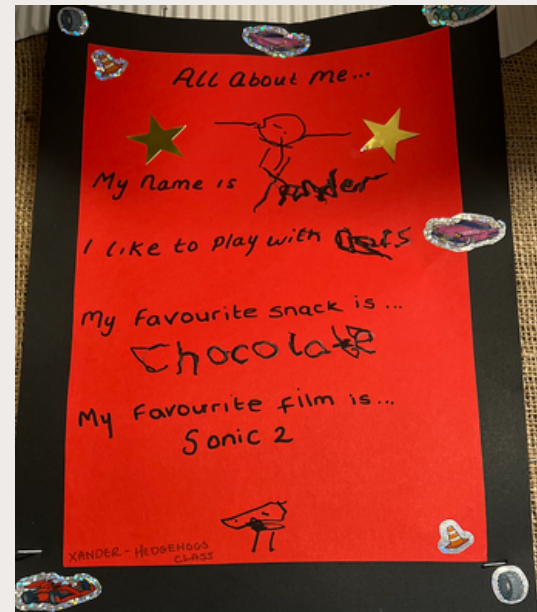 All About me...
My name is Xander
I like to play with cars
My favourite snack is...
Chocolate
My favourite film is...
Sonic 2
XANDER - HEDGEHOGS
CLASS